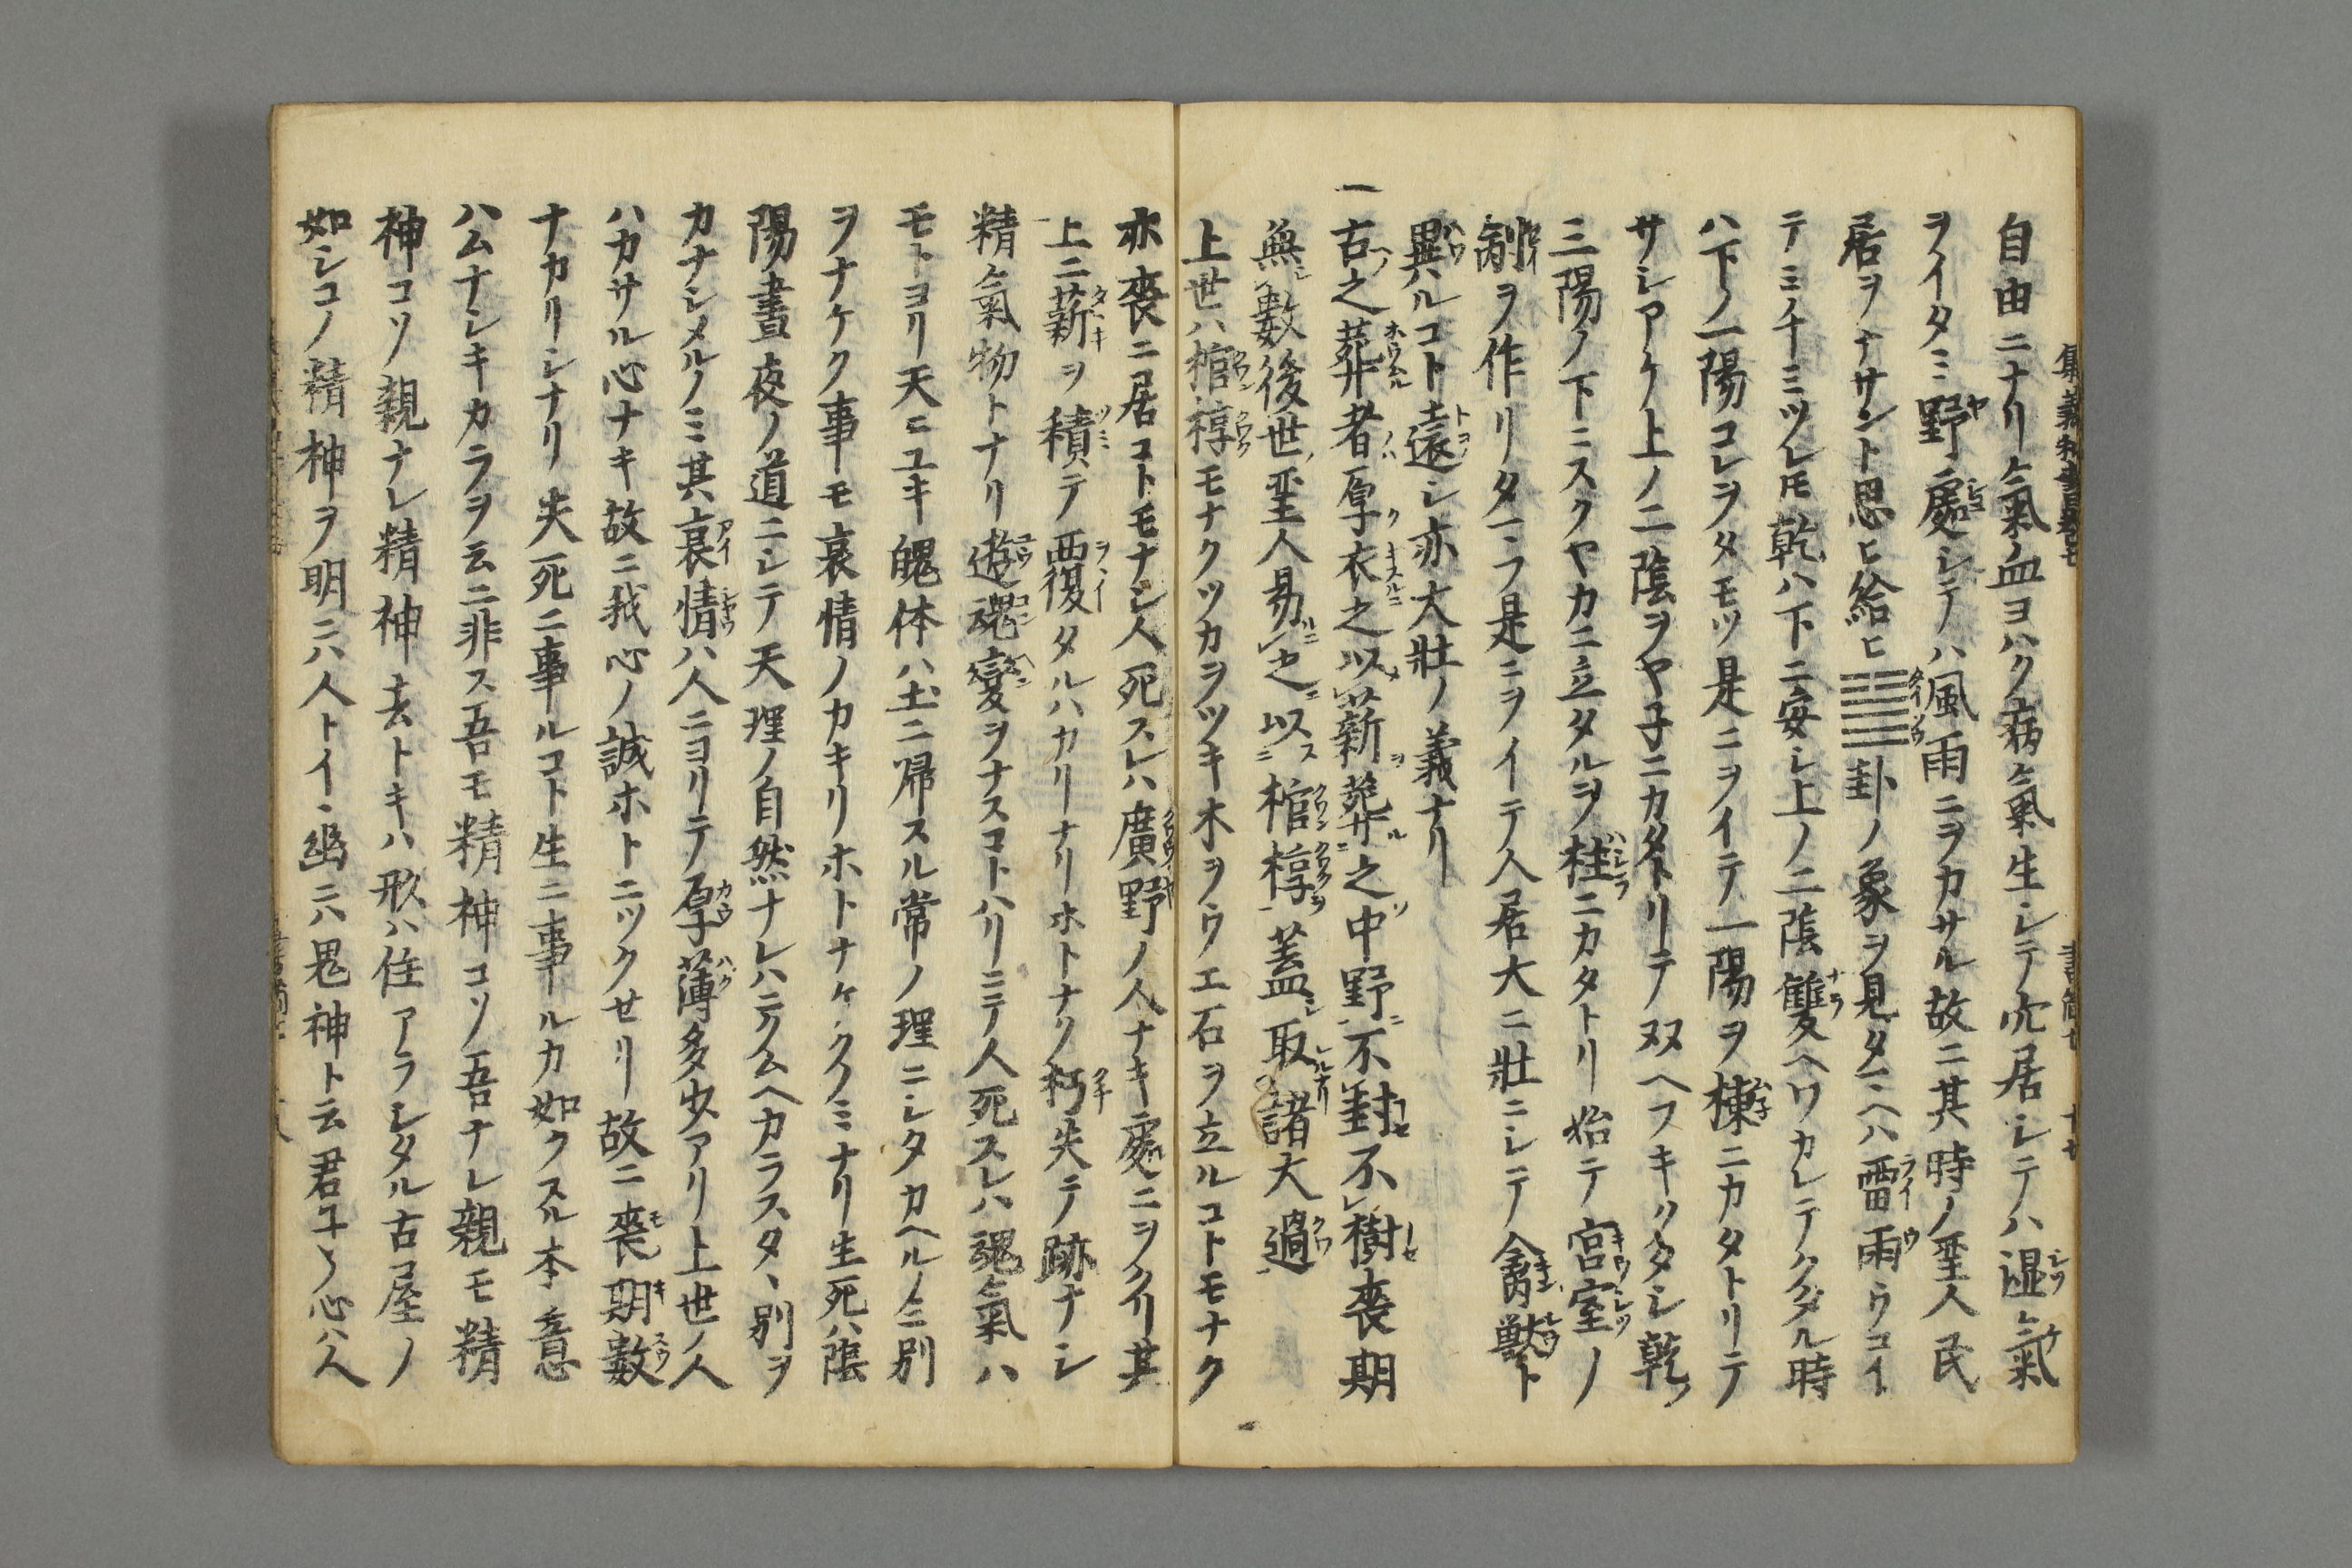 自由ニナリ氣血ヨハク病氣生シテ穴居シテハ湿氣
ヲイタミ野處シテハ風雨ニヲカサル故ニ其時ノ聖人民
居ヲナサント思ヒ給ヒ䷡卦ノ象ヲ見タマヘハ雷雨ウコイ
テミチミツレ𪜈乾ハ下ニ安シ上ノ二陰雙ヘワカレテクダル時
ハ下ノ一陽コレヲタモツ是ニヲイテ一陽ヲ棟ニカタトリテ
サシアケ上ノ二陰ヲヤ子ニカタトリテ双ヘフキクタシ乾ノ
三陽ノ下ニスクヤカニ立タルヲ柱ニカタトリ始テ宮室ノ
制ヲ作リタマフ是ニヲイテ人居大ニ壯ニシテ禽獣ト
異ルコト遠シ亦大壯ノ義ナリ
一古之葬者厚衣之以薪葬之中野不封不樹喪期
無數後世聖人易之以棺椁蓋取諸大過
上世ハ棺椁モナクツカヲツキ木ヲウエ石ヲ立ルコトモナク
亦喪ニ居コトモナシ人死スレハ廣野ノ人ナキ處ニヲクリ其
上ニ薪ヲ積テ覆タルハカリナリホトナク朽失テ跡ナシ
精氣物トナリ遊魂變ヲナスコトハリニテ人死スレハ魂氣ハ
モトヨリ天ニユキ魄体ハ土ニ帰スル常ノ理ニシタカヘルノミ別
ヲナケク事モ哀情ノカキリホトナケクノミナリ生死ハ陰
陽晝夜ノ道ニシテ天理ノ自然ナレハニクムヘカラスタヽ別ヲ
カナシメルノミ其哀情ハ人ニヨリテ厚薄多少アリ上世ノ人
ハカサル心ナキ故ニ我心ノ誠ホトニツクせリ故ニ喪期數
ナカリシナリ夫死ニ事ルコト生ニ事ルカ如クスル本意
ハムナシキカラヲ云ニ非ス吾モ精神コソ吾ナレ親モ精
神コソ親ナレ精神去トキハ形ハ住アラシタル古屋ノ
如シコノ精神ヲ明ニハ人トイヽ幽ニハ鬼神ト云君子ノ心ハ人